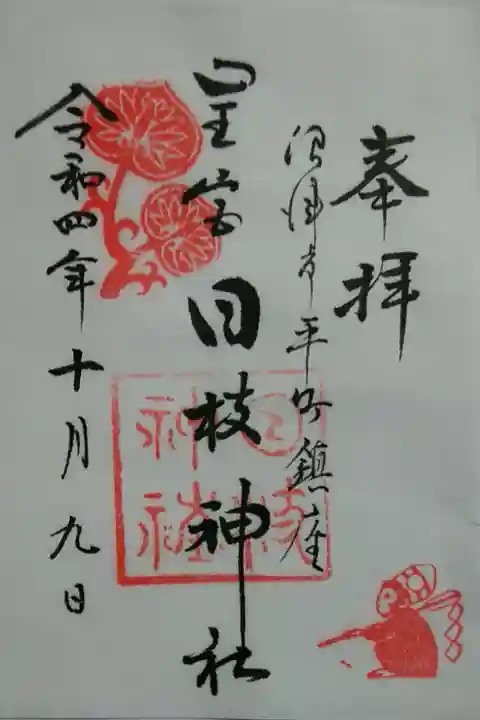 奉拝
沼津市平町鎮座
山王宮
日枝神社
令和四年十月九日
日枝神社